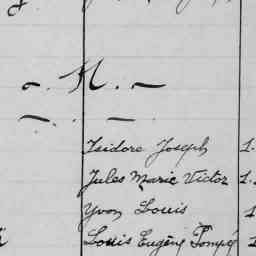 ~ . N . ~
Isidore Joseph 1.
Jules Marie Victor 1.
Yvon Louis 1
Louis Eugène